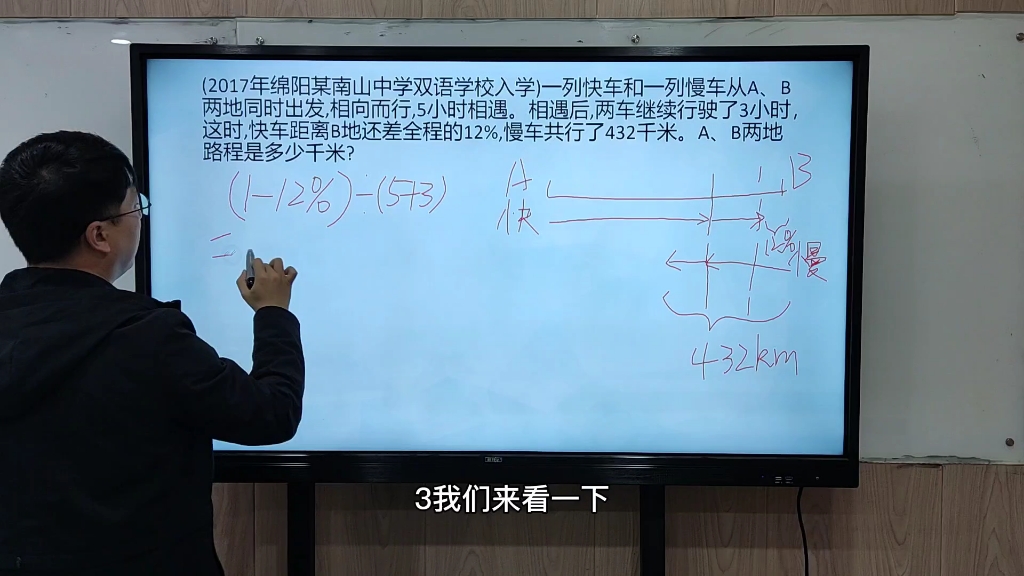 (2017年绵阳某南山中学双语学校入学)一列快车和一列慢车从A、B
两地同时出发,相向而行,5小时相遇。相遇后,两车继续行驶了3小时,
这时,快车距离B地还差全程的12%,慢车共行了432千米。A、B两地
路程是多少千米?
(1-12%)÷(5+3)
=
A
B
快
12%
慢
432km
3我们来看一下